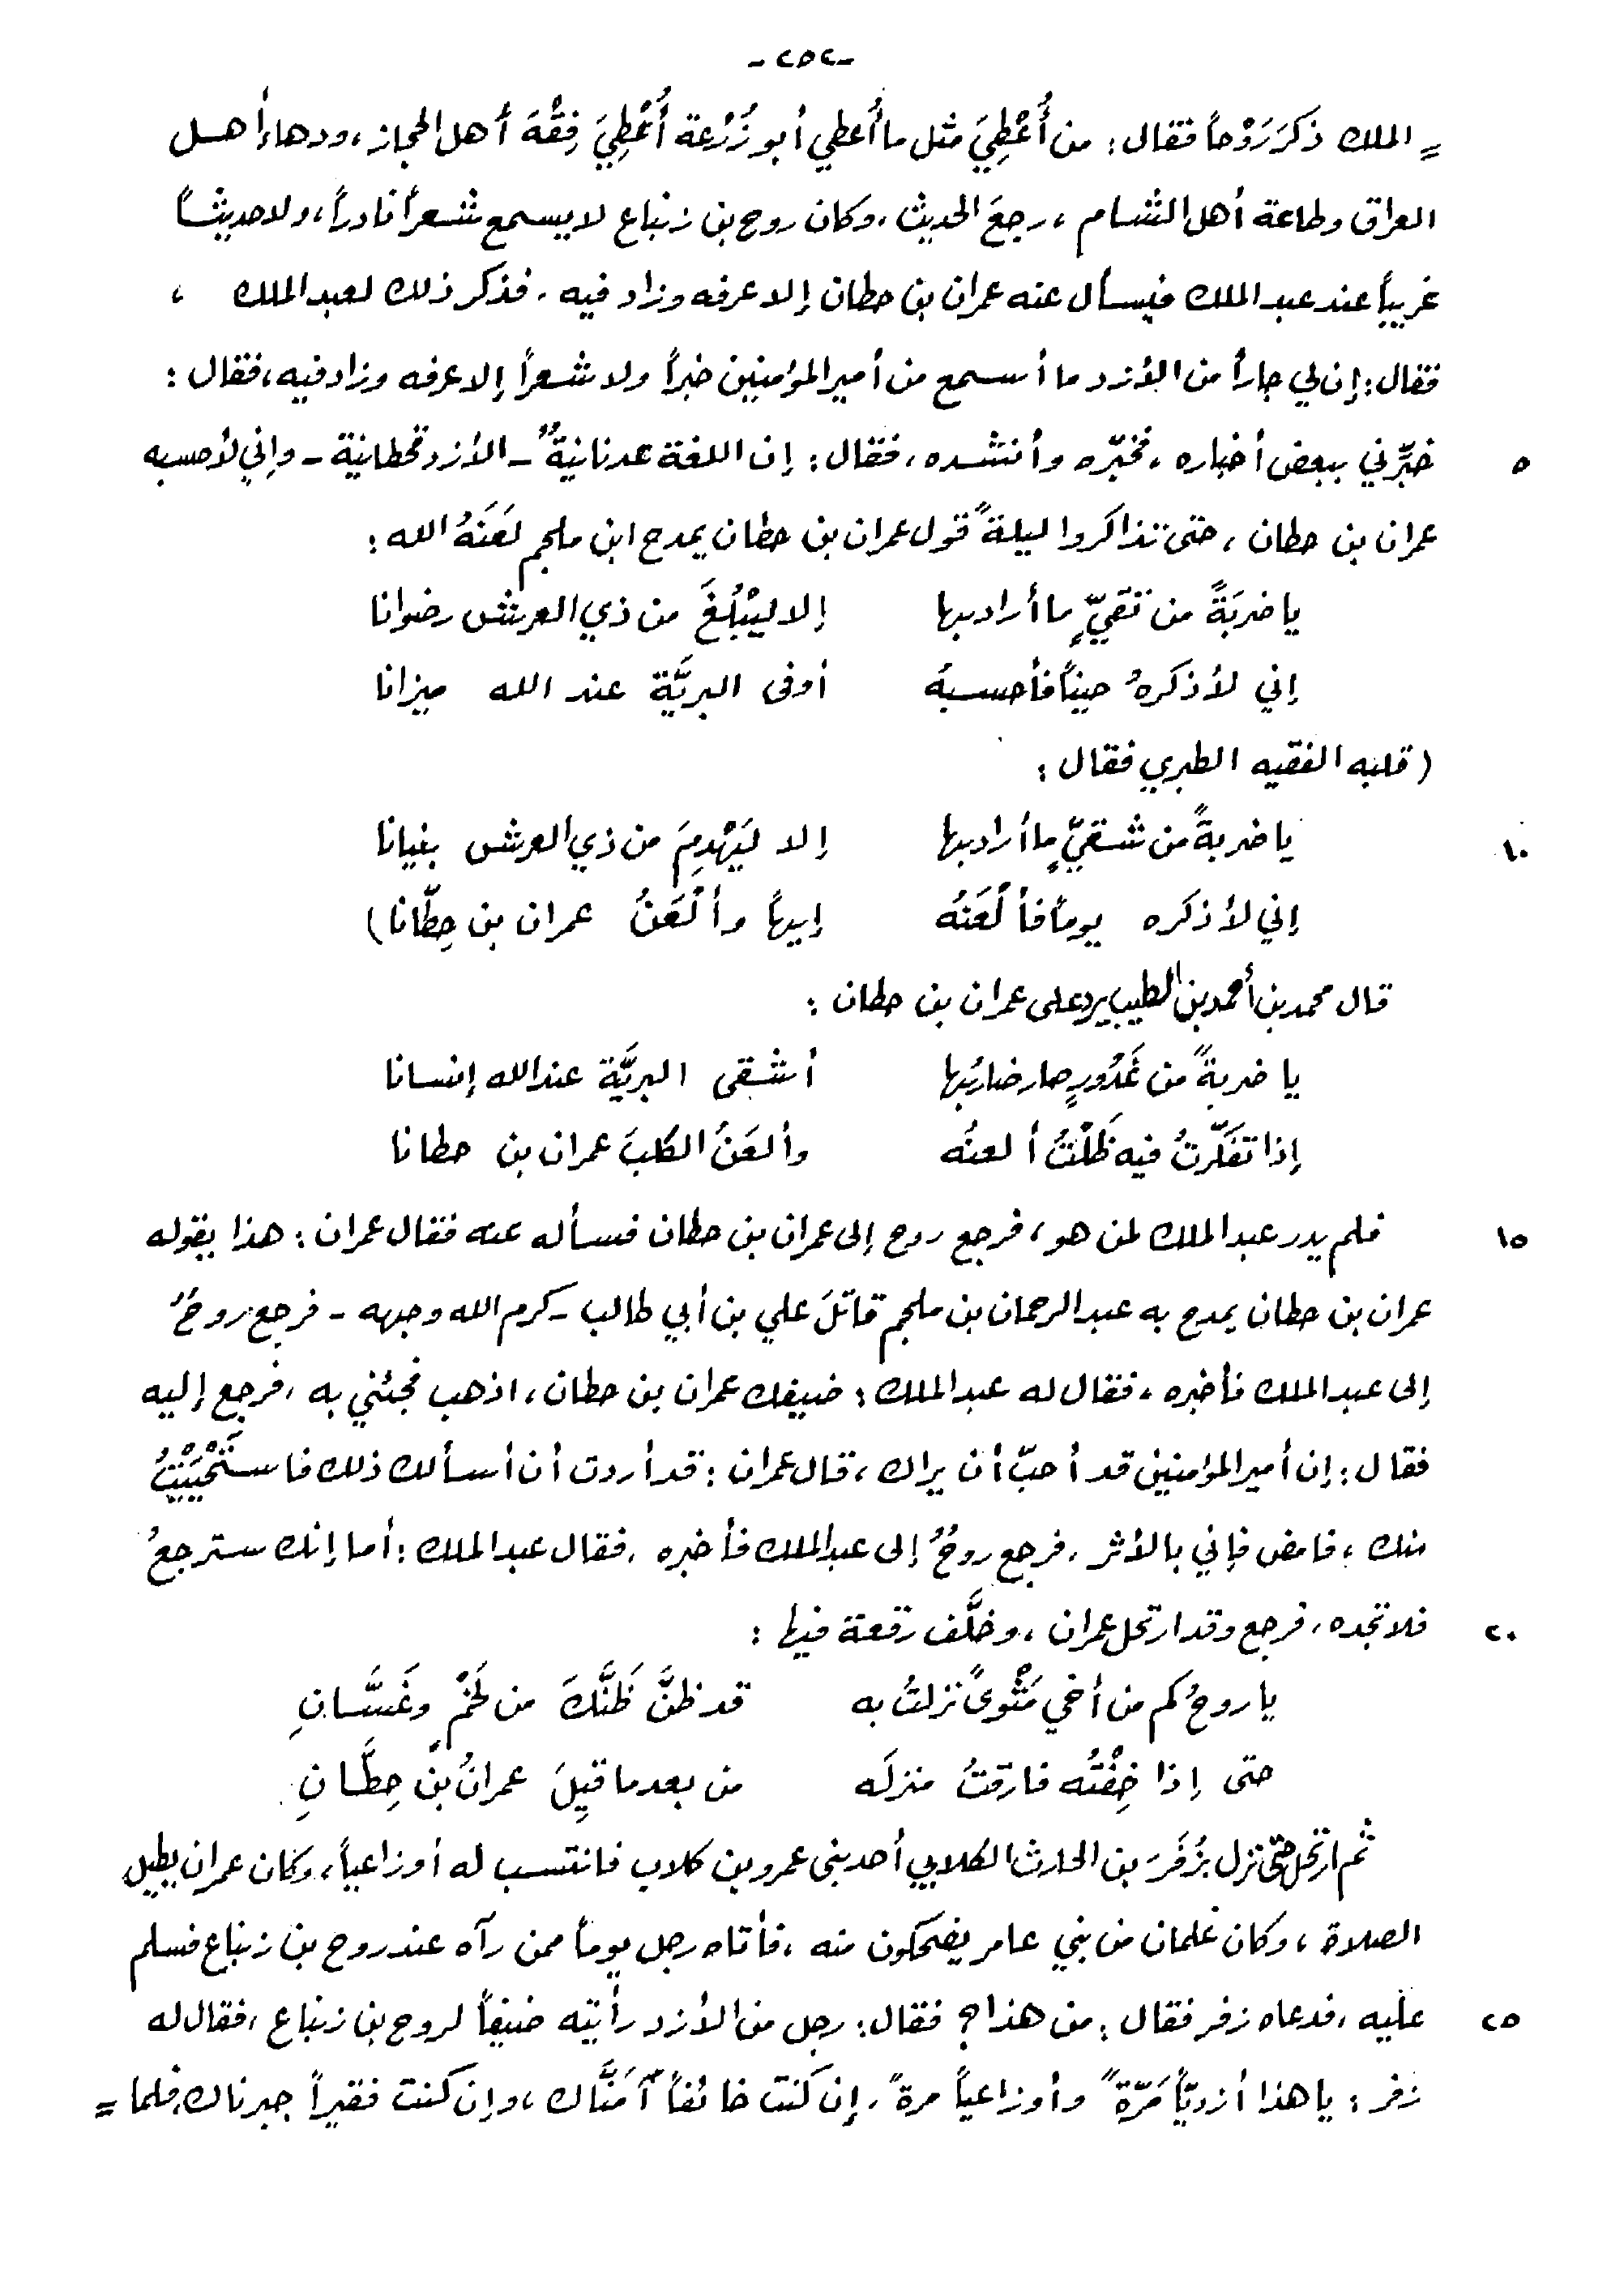 -٢٥٢-
= الملك ذكرَ رَوْحاً فقال: من أُعْطِيَ مثل ما أُعطي أبو زُرْعة أُعْطِيَ فِقْهَ أهل الحجاز، ودهاء أهل
العراق وطاعة أهل الشام، رجعَ الحديث، وكان روح بن زنباع لا يسمع شعراً نادراً، ولا حديثاً
غريباً عند عبد الملك فيسأل عنه عمران بن حطان إلا عرفه وزاد فيه. فذكر ذلك لعبد الملك ،
فقال: إن لي جاراً من الأزد ما أسمع من أمير المؤمنين خبراً ولا شعراً إلا عرفه وزاد فيه، فقال:
خبِّرني ببعض أخباره، فخبّره وأنشده، فقال: إن اللغة عدنانيةٌ - الأزد قحطانية - وإني لأحسبه ٥
عمران بن حطان، حتى تذاكروا ليلةً قول عمران بن حطان يمدح ابن ملجم لعَنَهُ الله:
يا ضربَةً من تقيٍّ ما أراد بها إلا ليَبْلُغَ من ذي العرش رضوانا
إني لأذكرهُ حيناً فأحسبهُ أوفى البريَّة عند الله ميزانا
(قلبه الفقيه الطبري فقال:
يا ضربةً من شقيٍّ ما أراد بها إلا ليَهْدِمَ من ذي العرش بنيانا ١٠
إني لأذكره يوماً فألْعَنُه إيهاً وألْعَنُ عمران بن حِطّانا)
قال محمد بن أحمد بن الطيب يرد على عمران بن حطان:
يا ضربةً من غَدُورٍ صار ضاربُها أشقى البريَّة عند الله إنسانا
إذا تفَكّرتُ فيه ظَلْتُ ألعنُه وألعَنُ الكلبَ عمران بن حطانا
فلم يدر عبد الملك لمن هو، فرجع روح إلى عمران بن حطان فسأله عنه فقال عمران: هذا يقوله ١٥
عمران بن حطان يمدح به عبد الرحمان بن ملجم قاتلَ علي بن أبي طالب - كرم الله وجهه - فرجع روحٌ
إلى عبد الملك فأخبره، فقال له عبد الملك: ضيفك عمران بن حطان، اذهب فجئني به، فرجع إليه
فقال: إن أمير المؤمنين قد أحبّ أن يراك، قال عمران: قد أردت أن أسألك ذلك فاستَحْيَيْتُ
منك، فامض فإني بالأثر، فرجع روحٌ إلى عبد الملك فأخبره. فقال عبد الملك: أما إنك سترجعُ
فلا تجده، فرجع وقد ارتحل عمران، وخلَّف رقعة فيها: ٢٠
يا روحُ كم من أخي مَثْوىً نزلتُ به قد ظنَّ ظَنَّكَ من لَخْمٍ وغَسَّانِ
حتى إذا خِفْتُه فارقتُ منزلَه من بعد ما قيِلَ عمرانُ بنُ حِطَّانِ
ثم ارتحل حتى نزل بزُفَرَ بن الحارث الكلابي أحد بني عمرو بن كلاب فانتسب له أوزاعياً، وكان عمران يطيل
الصلاة، وكان غلمان من بني عامر يضحكون منه، فأتاه رجل يوماً ممن رآه عند روح بن زنباع فسلم
عليه، فدعاه زفر فقال: من هذا؟ فقال: رجل من الأزد رأيته ضيفاً لروح بن زنباع، فقال له ٢٥
زفر: يا هذا أزديّاً مَرّةً وأوزاعياً مرةً، إن كنت خائفاً آمَنَّاك، وإن كنت فقيراً جبرناك، فلما =